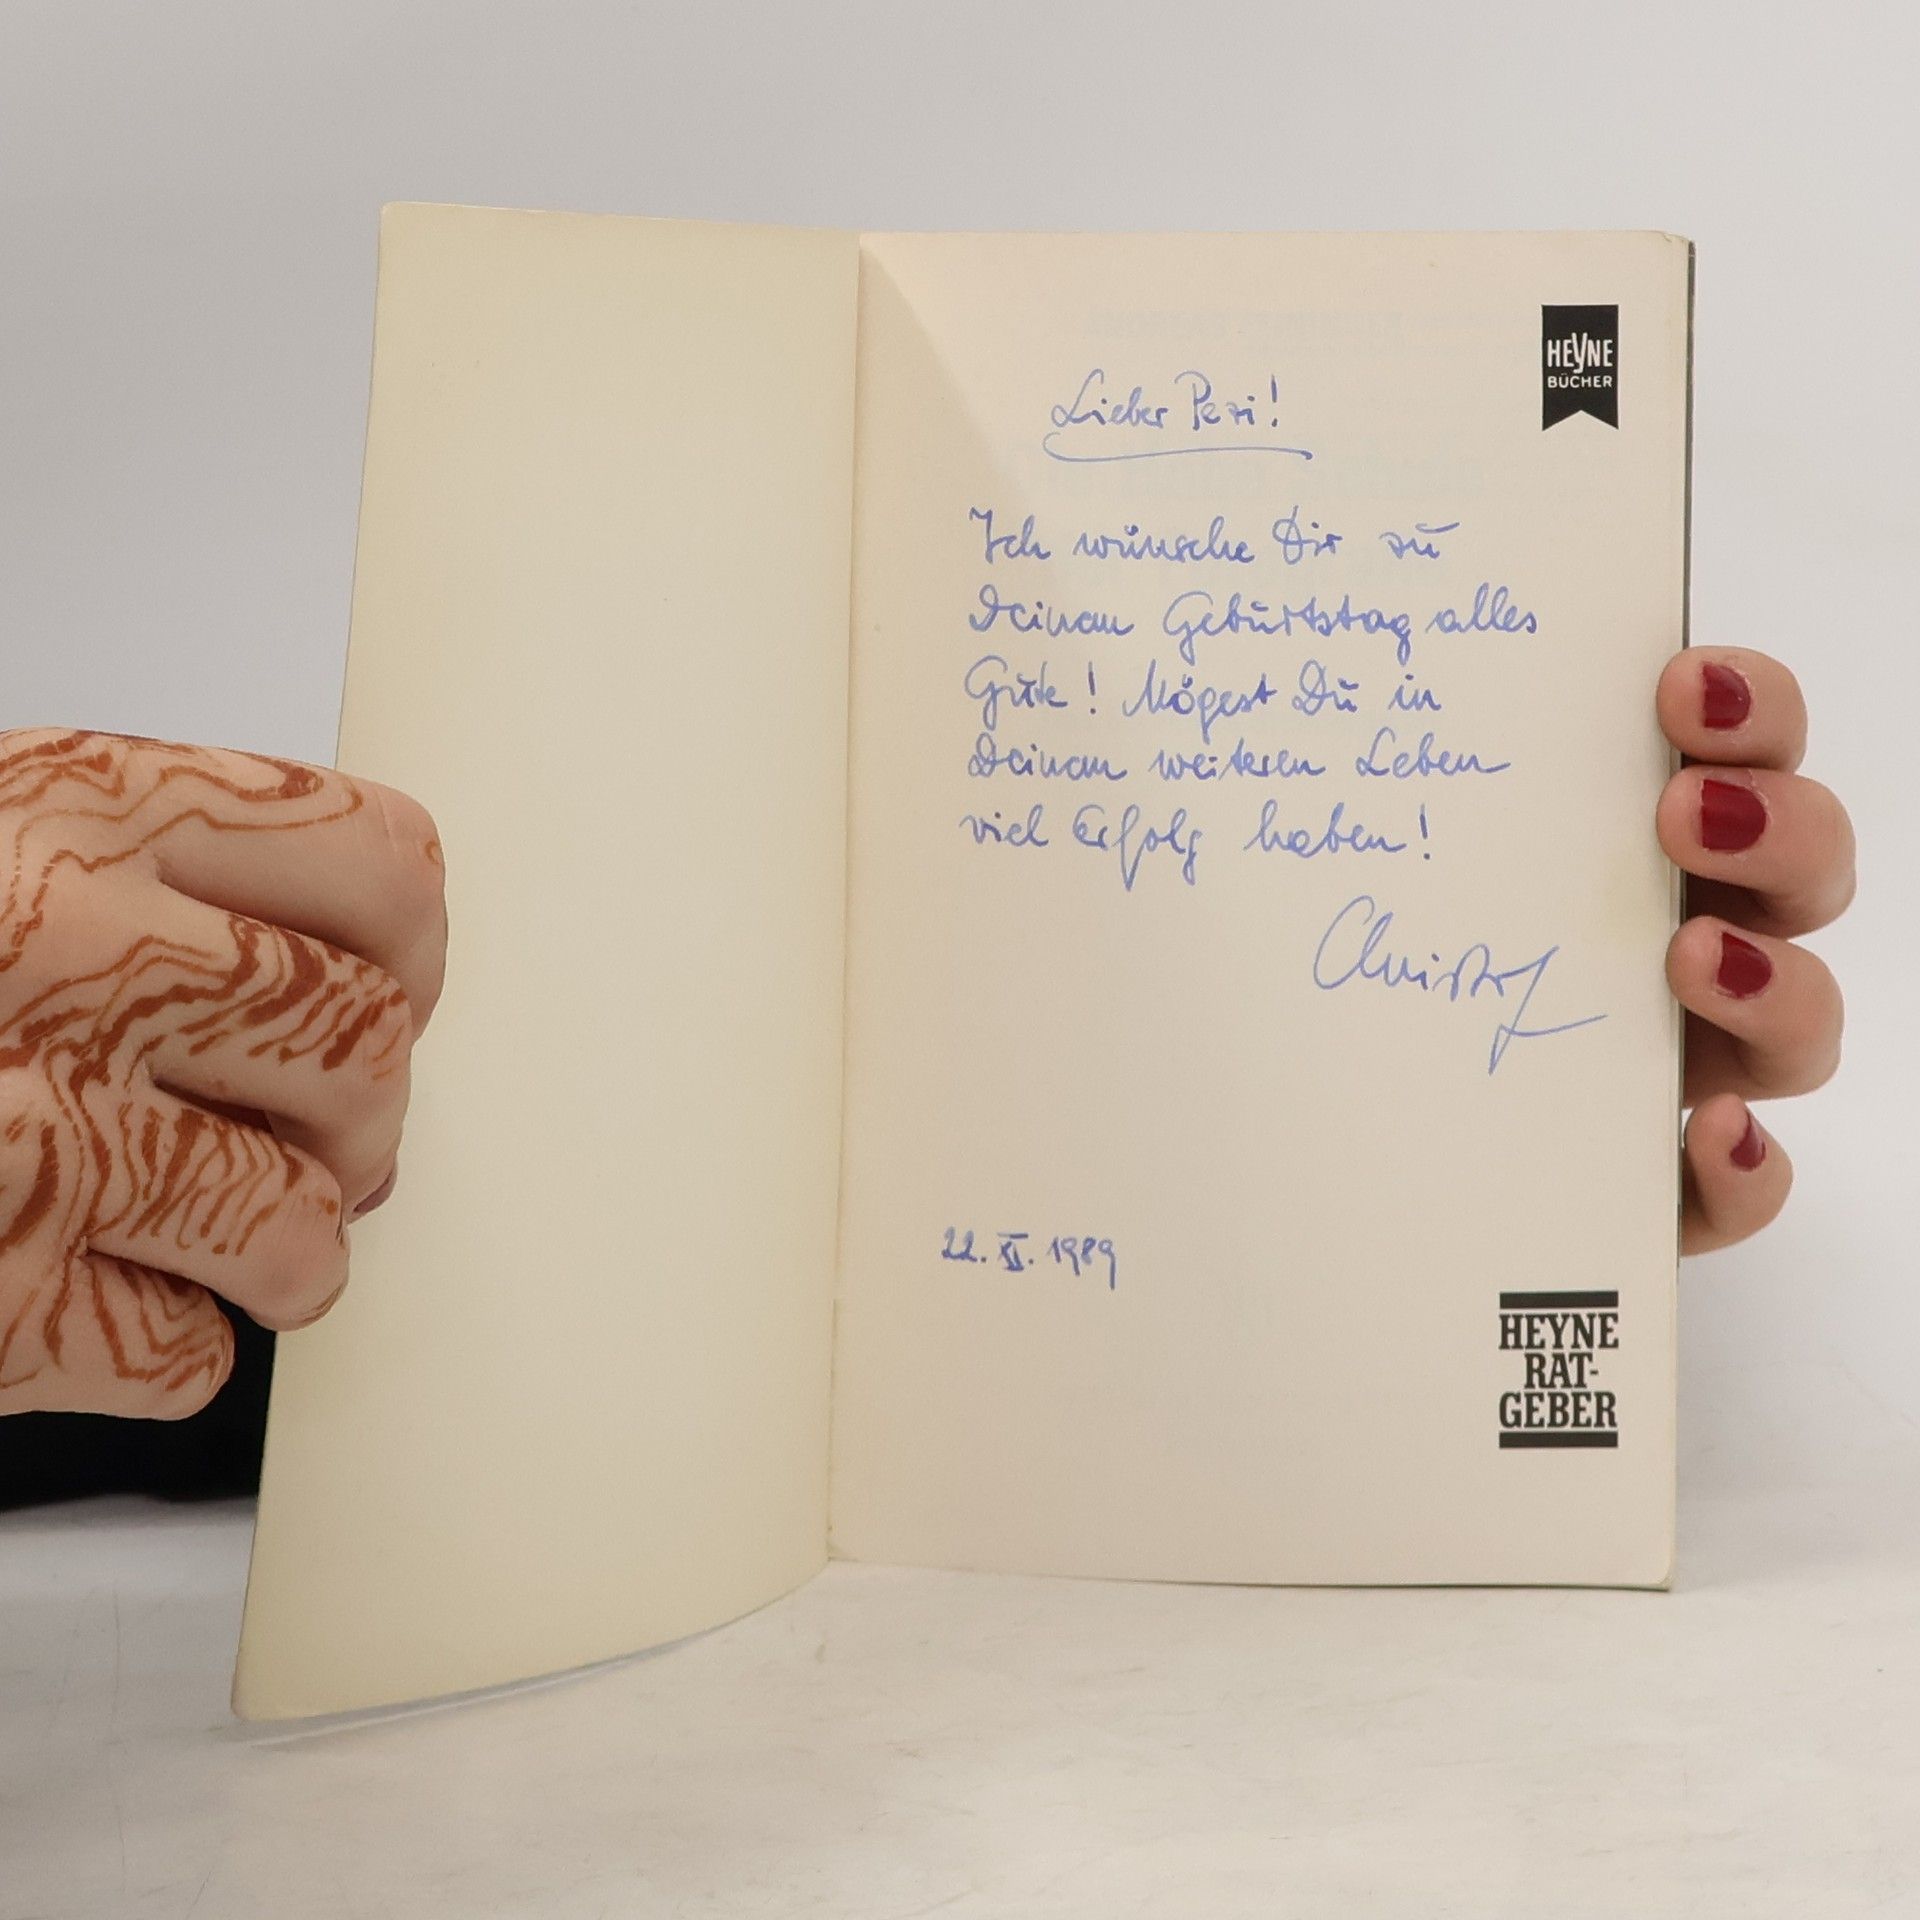 HEYNE
BÜCHER
Lieber Pezi!
Ich wünsche Dir zu
Deinem Geburtstag alles
Gute! Mögest Du in
Deinem weiteren Leben
viel Erfolg haben!
Christof
22. XI. 1989
HEYNE
RAT-
GEBER